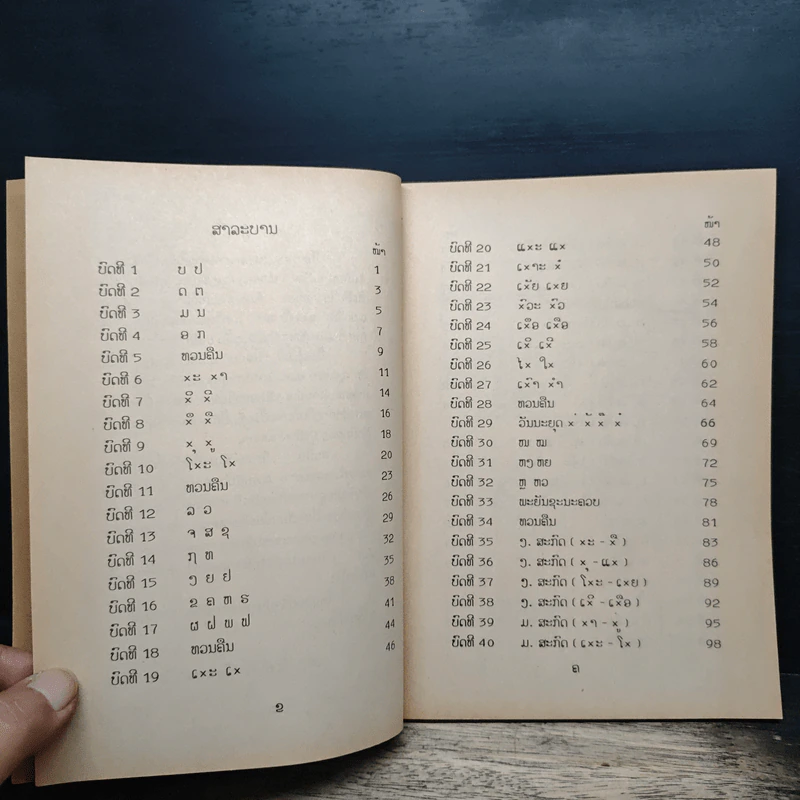 ສາລະບານ
ໜ້າ
ບົດທີ 1 ບ ປ 1
ບົດທີ 2 ດ ຕ 3
ບົດທີ 3 ມ ນ 5
ບົດທີ 4 ອ ກ 7
ບົດທີ 5 ທວນຄືນ 9
ບົດທີ 6 xະ xາ 11
ບົດທີ 7 xິ xີ 14
ບົດທີ 8 xຶ xື 16
ບົດທີ 9 xຸ xູ 18
ບົດທີ 10 ໂxະ ໂx 20
ບົດທີ 11 ທວນຄືນ 23
ບົດທີ 12 ລ ວ 26
ບົດທີ 13 ຈ ສ ຊ 29
ບົດທີ 14 ຖ ທ 32
ບົດທີ 15 ງ ຍ ຢ 35
ບົດທີ 16 ຂ ຄ ຫ ຣ 38
ບົດທີ 17 ຜ ຝ ພ ຟ 41
ບົດທີ 18 ທວນຄືນ 44
ບົດທີ 19 ເxະ ເx 46
ຂ
ໜ້າ
ບົດທີ 20 ແxະ ແx 48
ບົດທີ 21 ເxາະ xໍ 50
ບົດທີ 22 ເxັຍ ເxຍ 52
ບົດທີ 23 xົວະ xົວ 54
ບົດທີ 24 ເxຶອ ເxືອ 56
ບົດທີ 25 ເxິ ເxີ 58
ບົດທີ 26 ໄx ໃx 60
ບົດທີ 27 ເxົາ xຳ 62
ບົດທີ 28 ທວນຄືນ 64
ບົດທີ 29 ວັນນະຍຸດ x່ x້ x໊ x໋ 66
ບົດທີ 30 ໜ ໝ 69
ບົດທີ 31 ຫງ ຫຍ 72
ບົດທີ 32 ຫຼ ຫວ 75
ບົດທີ 33 ພະຍັນຊະນະຄວບ 78
ບົດທີ 34 ທວນຄືນ 81
ບົດທີ 35 ງ. ສະກົດ ( xະ - xື ) 83
ບົດທີ 36 ງ. ສະກົດ ( xຸ - ແx ) 86
ບົດທີ 37 ງ. ສະກົດ ( ໂxະ - ເxຍ ) 89
ບົດທີ 38 ງ. ສະກົດ ( ເxິ - ເxືອ ) 92
ບົດທີ 39 ມ. ສະກົດ ( xາ - xູ ) 95
ບົດທີ 40 ມ. ສະກົດ ( ເxະ - ໂx ) 98
ຄ